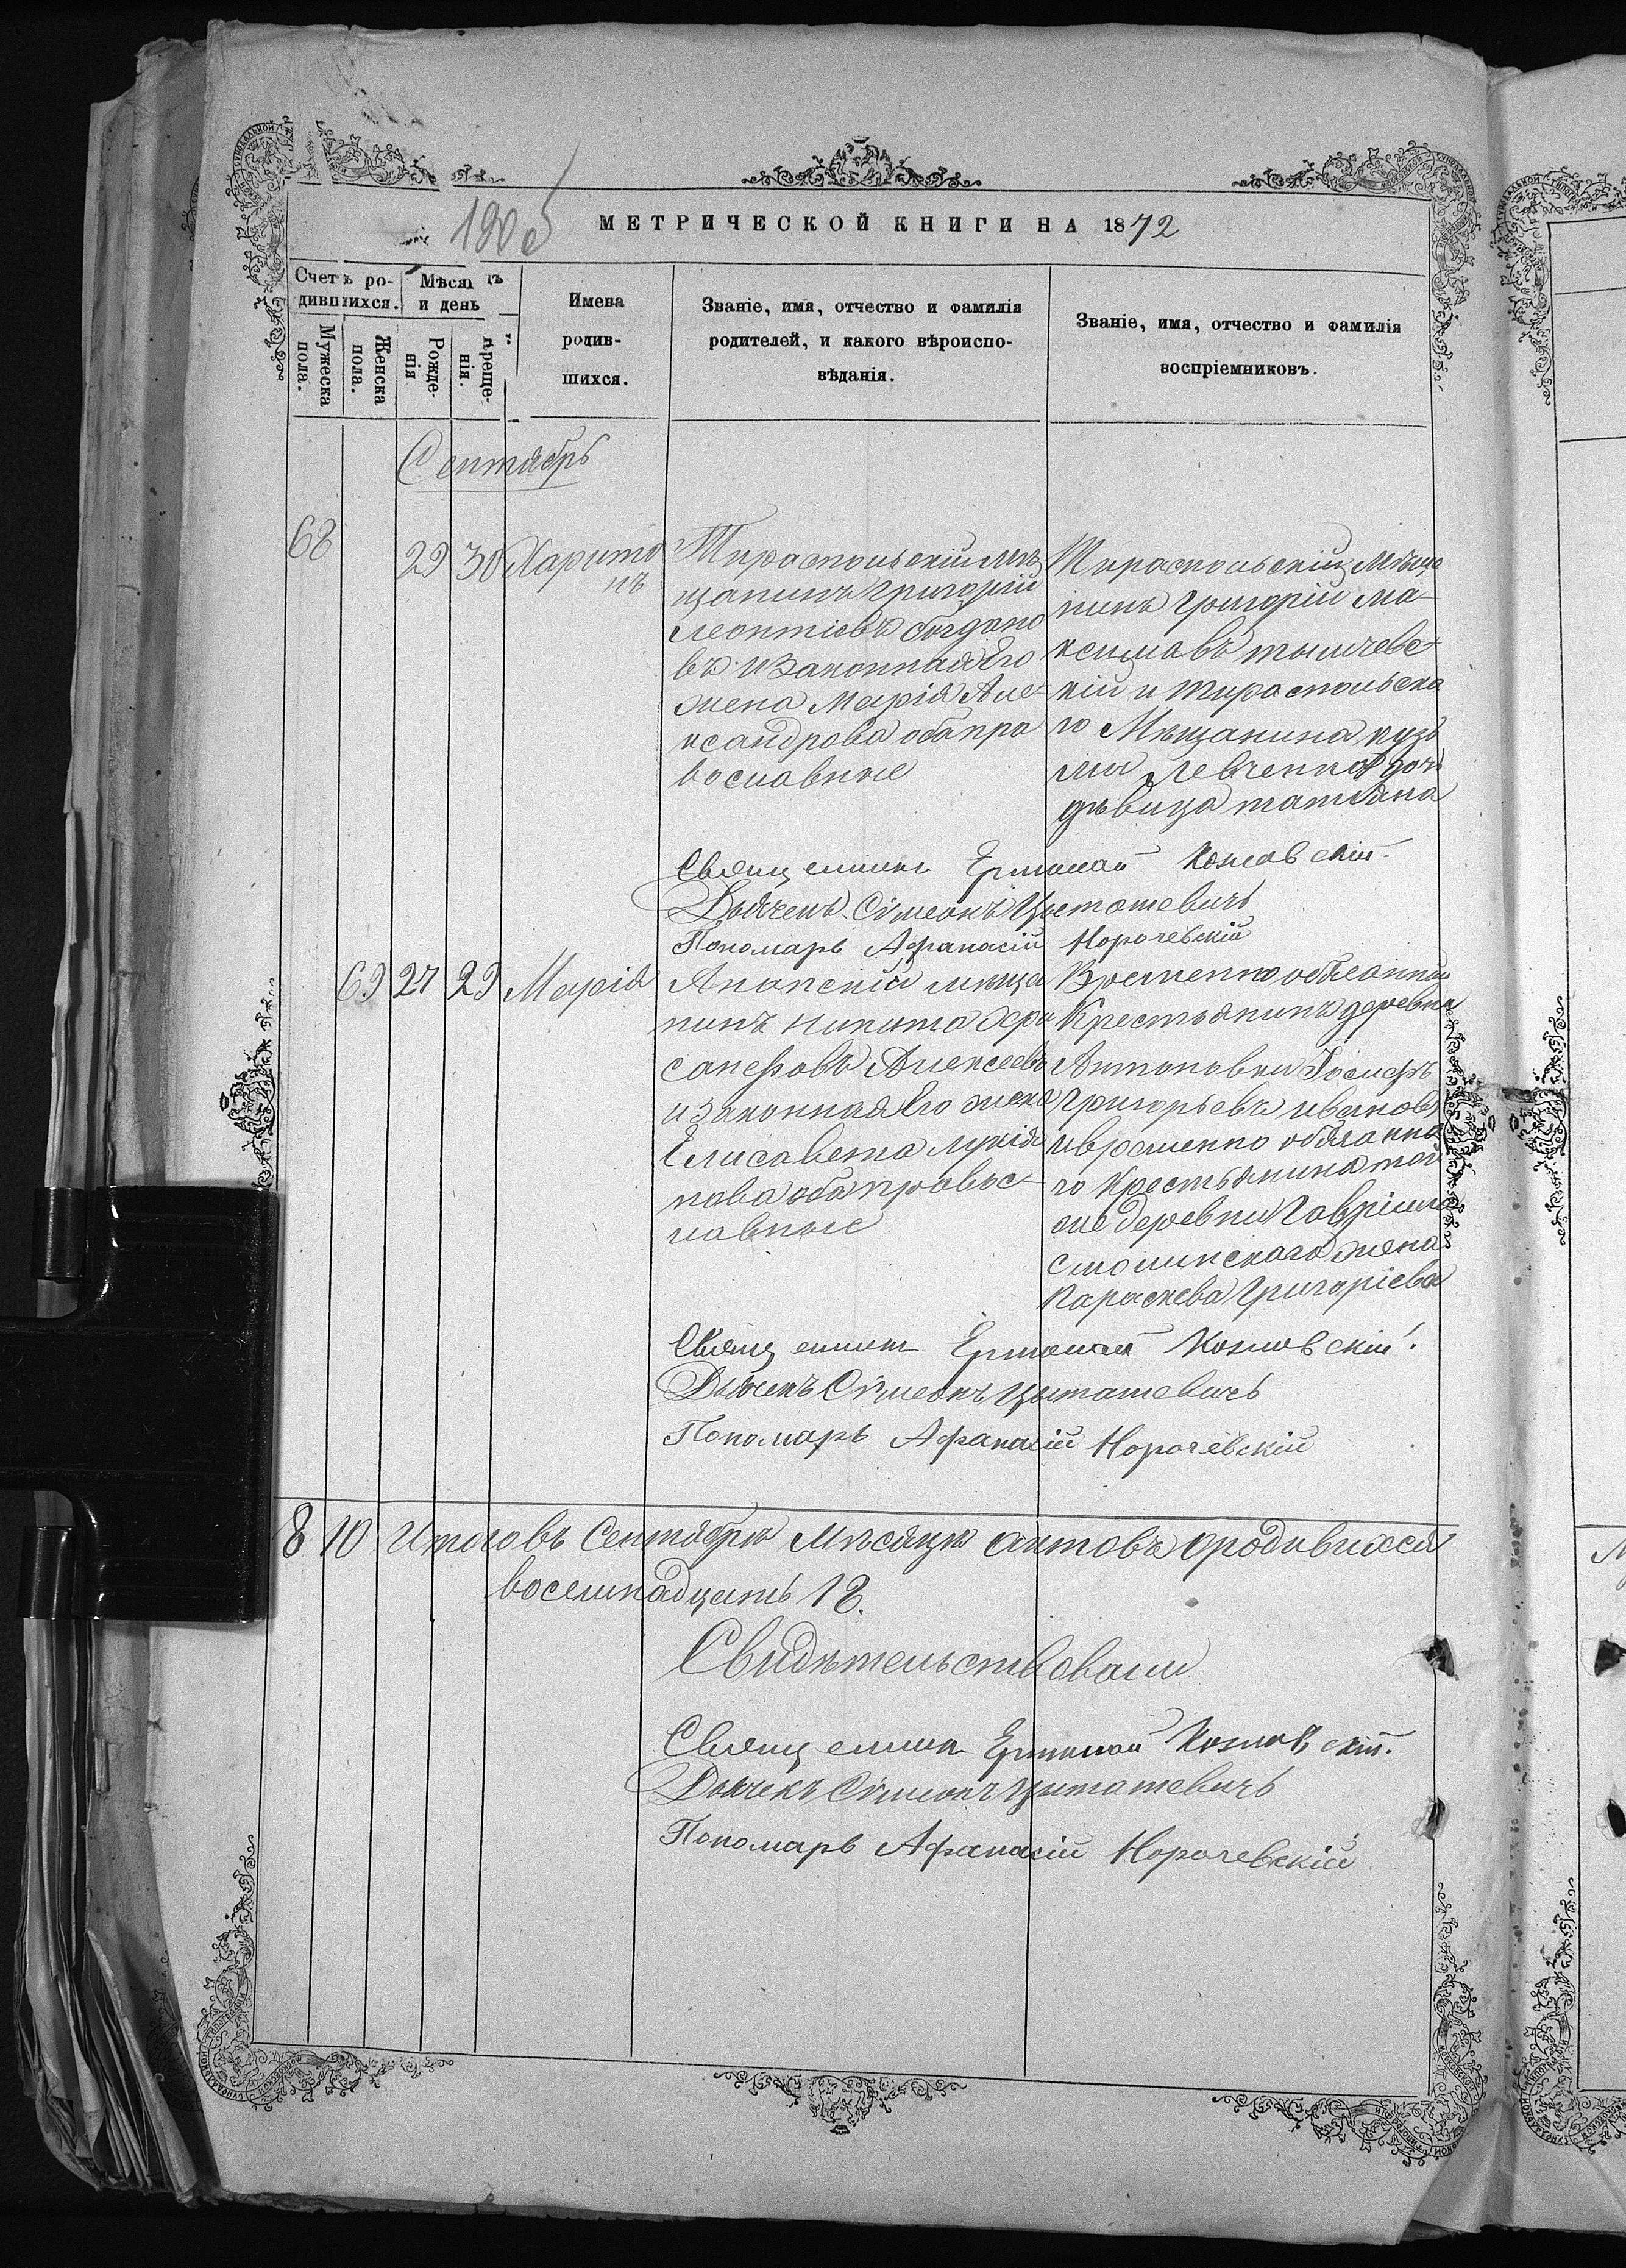 190 об
МЕТРИЧЕСКОЙ КНИГИ НА 1872
Счетъ ро-
дившихся.
Мѣсяцъ
и день
Мужеска
пола.
Женска
пола.
Рожде-
нія
креще-
нія.
Имена
родив-
шихся.
Званіе, имя, отчество и фамилія
родителей, и какого вѣроиспо-
вѣданія.
Званіе, имя, отчество и фамилія
воспріемниковъ.
Сентябрь
68 29 30 Харито
нъ
Тираспольскій мѣ
щанинъ Григорій
Леонтіевъ Богдано
въ и Законная Его
жена Марія Але-
ксандрова оба пра
вославные
Тираспольскій Мѣща
нинъ Григорій Ма-
ксимовъ
кій и Тираспольска
го Мѣщанина Кузь
мы Левченка дочь
дѣвица Татіана
Священникъ Ермолай Козловскій.
Дьячекъ Сѵмеонъ Цытатевичъ
Пономарь Афанасій Норочевскій
69 27 29 Марія
Ананскій мѣща
нинъ Никита
Алексеевъ
и законная Его жена
Елисавета Лукія
нова оба правос-
лавные
Временно обязанный
Крестьянинъ деревни
Антоновки
Григорьевъ Ивановъ
и временно обязанна
го Крестьянина той
же деревни Гавріила
Смолинскаго жена
Параскева Григоріева
Священникъ Ермолай Козловскій.
Дьячекъ Сѵмеонъ Цытатевичъ
Пономарь Афанасій Норочевскій
8 10 Итого въ Сентябрѣ Мѣсяцѣ актовъ о родившихся
восемнадцать 18.
Свидѣтельствовали
Священникъ Ермолай Козловскій.
Дьячекъ Сѵмеонъ Цытатевичъ
Пономарь Афанасій Норочевскій